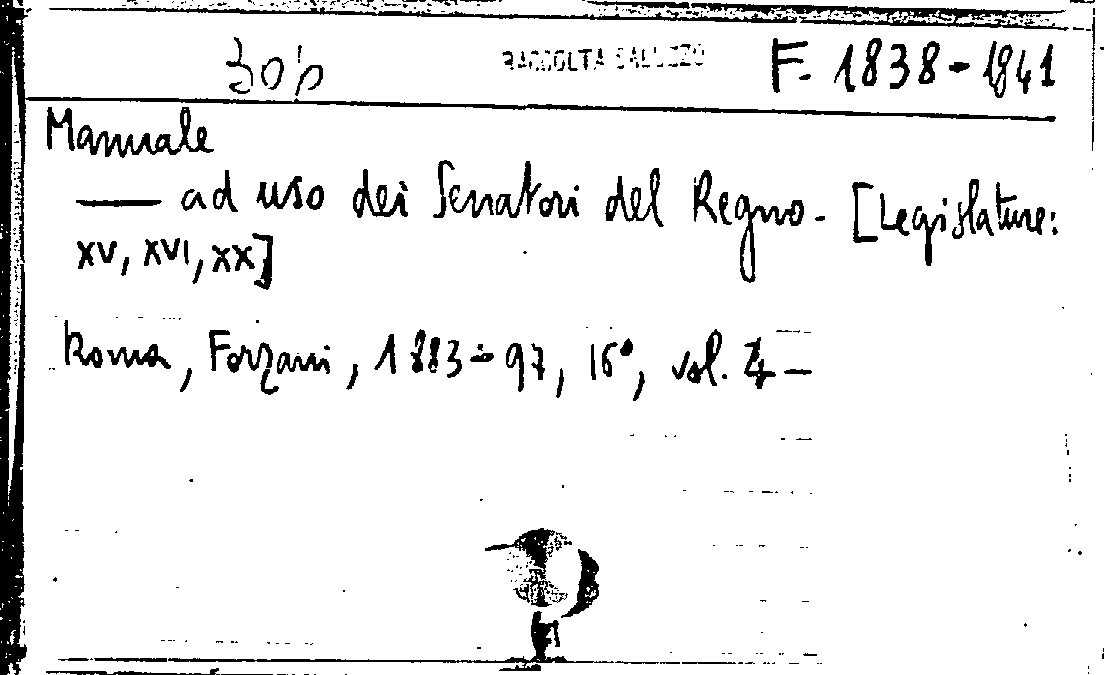 RACCOLTA SALUZZO F. 1838-1841
Manuale
— ad uso dei Senatori del Regno - [Legislature:
XV, XVI, XX]
Roma, Forzani, 1883-97, 16°, vol. 4 —